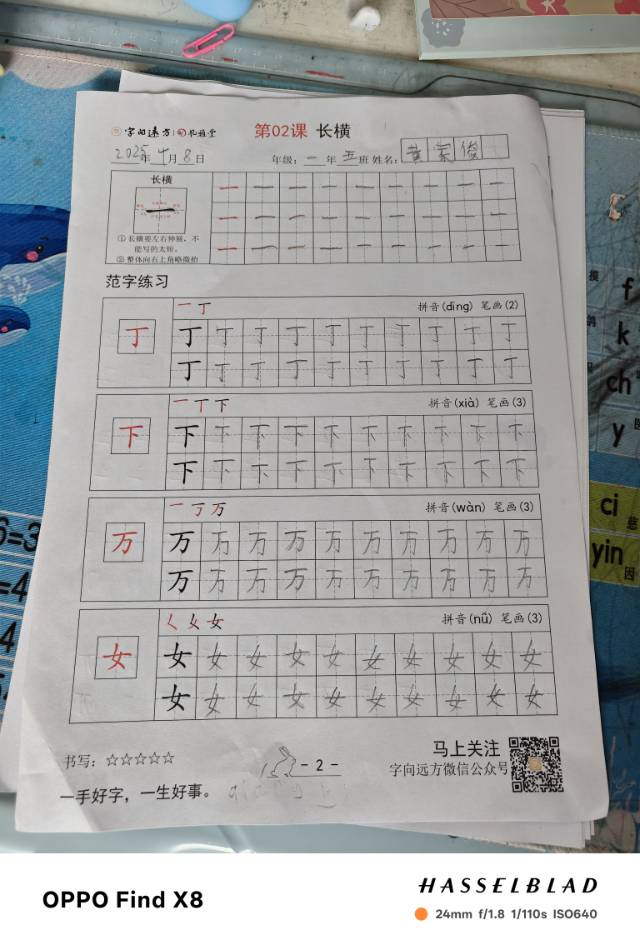 字向远方 礼雅堂
第02课 长横
2025年4月8日 年级：一年五班 姓名：黄宗俊
长横
①长横要左右伸展，不能写的太短。
②整体向右上角略微抬
一 一 一 一 一 一 一 一 一
一 一 一 一 一 一 一 一 一
一 一 一 一 一 一 一 一 一
范字练习
一 丁 拼音(dīng) 笔画(2)
丁 丁 丁 丁 丁 丁 丁 丁 丁 丁 丁
丁 丁 丁 丁 丁 丁 丁 丁 丁 丁
一 丅 下 拼音(xià) 笔画(3)
下 下 下 下 下 下 下 下 下 下 下
下 下 下 下 下 下 下 下 下 下
一 丁 万 拼音(wàn) 笔画(3)
万 万 万 万 万 万 万 万 万 万 万
万 万 万 万 万 万 万 万 万 万
く 乂 女 拼音(nǚ) 笔画(3)
女 女 女 女 女 女 女 女 女 女 女
女 女 女 女 女 女 女 女 女 女
书写：☆☆☆☆☆
- 2 -
马上关注
字向远方微信公众号
一手好字，一生好事。
f
k
ch
y
ci
yin
因
6=3
=4
4
OPPO Find X8
HASSELBLAD
24mm f/1.8 1/110s ISO640